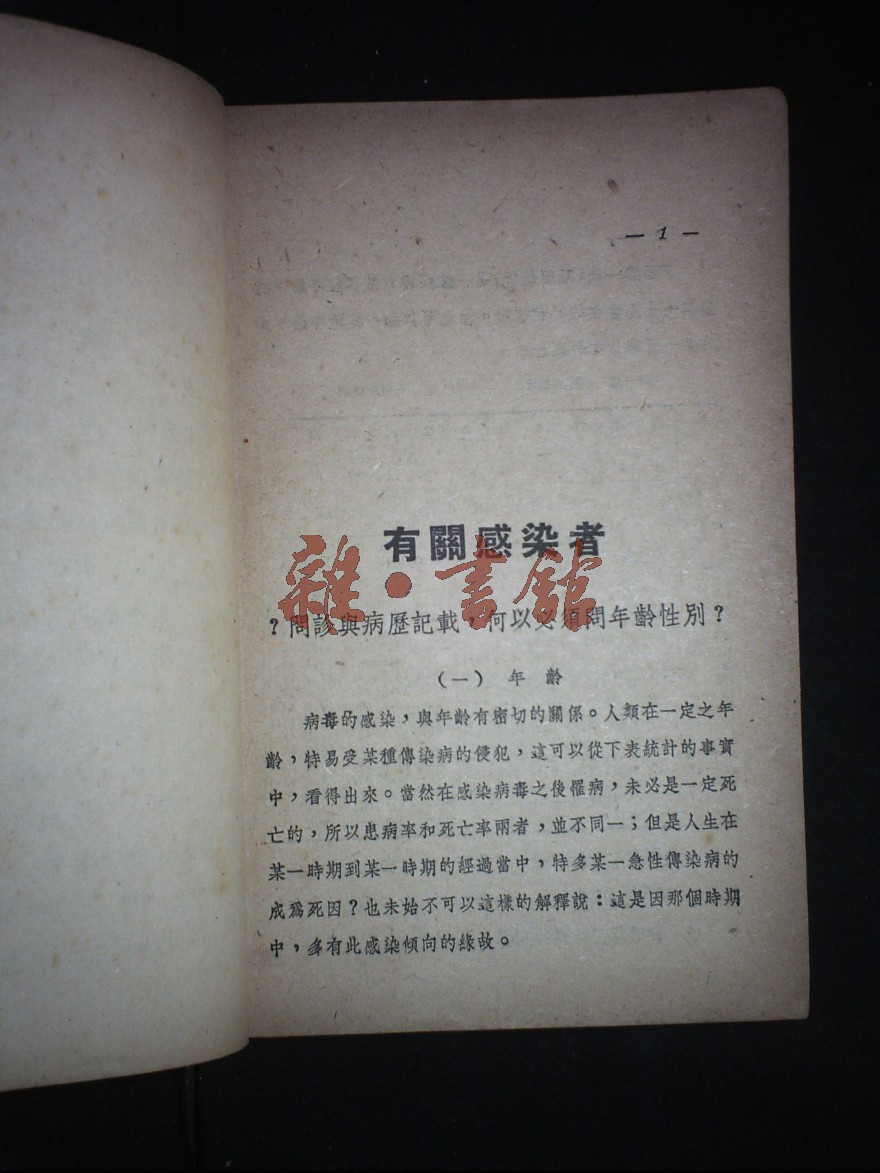 — 1 —
有關感染者
雜·書館
?問診與病歷記載,何以必須問年齡性別?
(一) 年 齡
病毒的感染,與年齡有密切的關係。人類在一定之年
齡,特易受某種傳染病的侵犯,這可以從下表統計的事實
中,看得出來。當然在感染病毒之後罹病,未必是一定死
亡的,所以患病率和死亡率兩者,並不同一;但是人生在
某一時期到某一時期的經過當中,特多某一急性傳染病的
成爲死因?也未始不可以這樣的解釋說:這是因那個時期
中,多有此感染傾向的緣故。